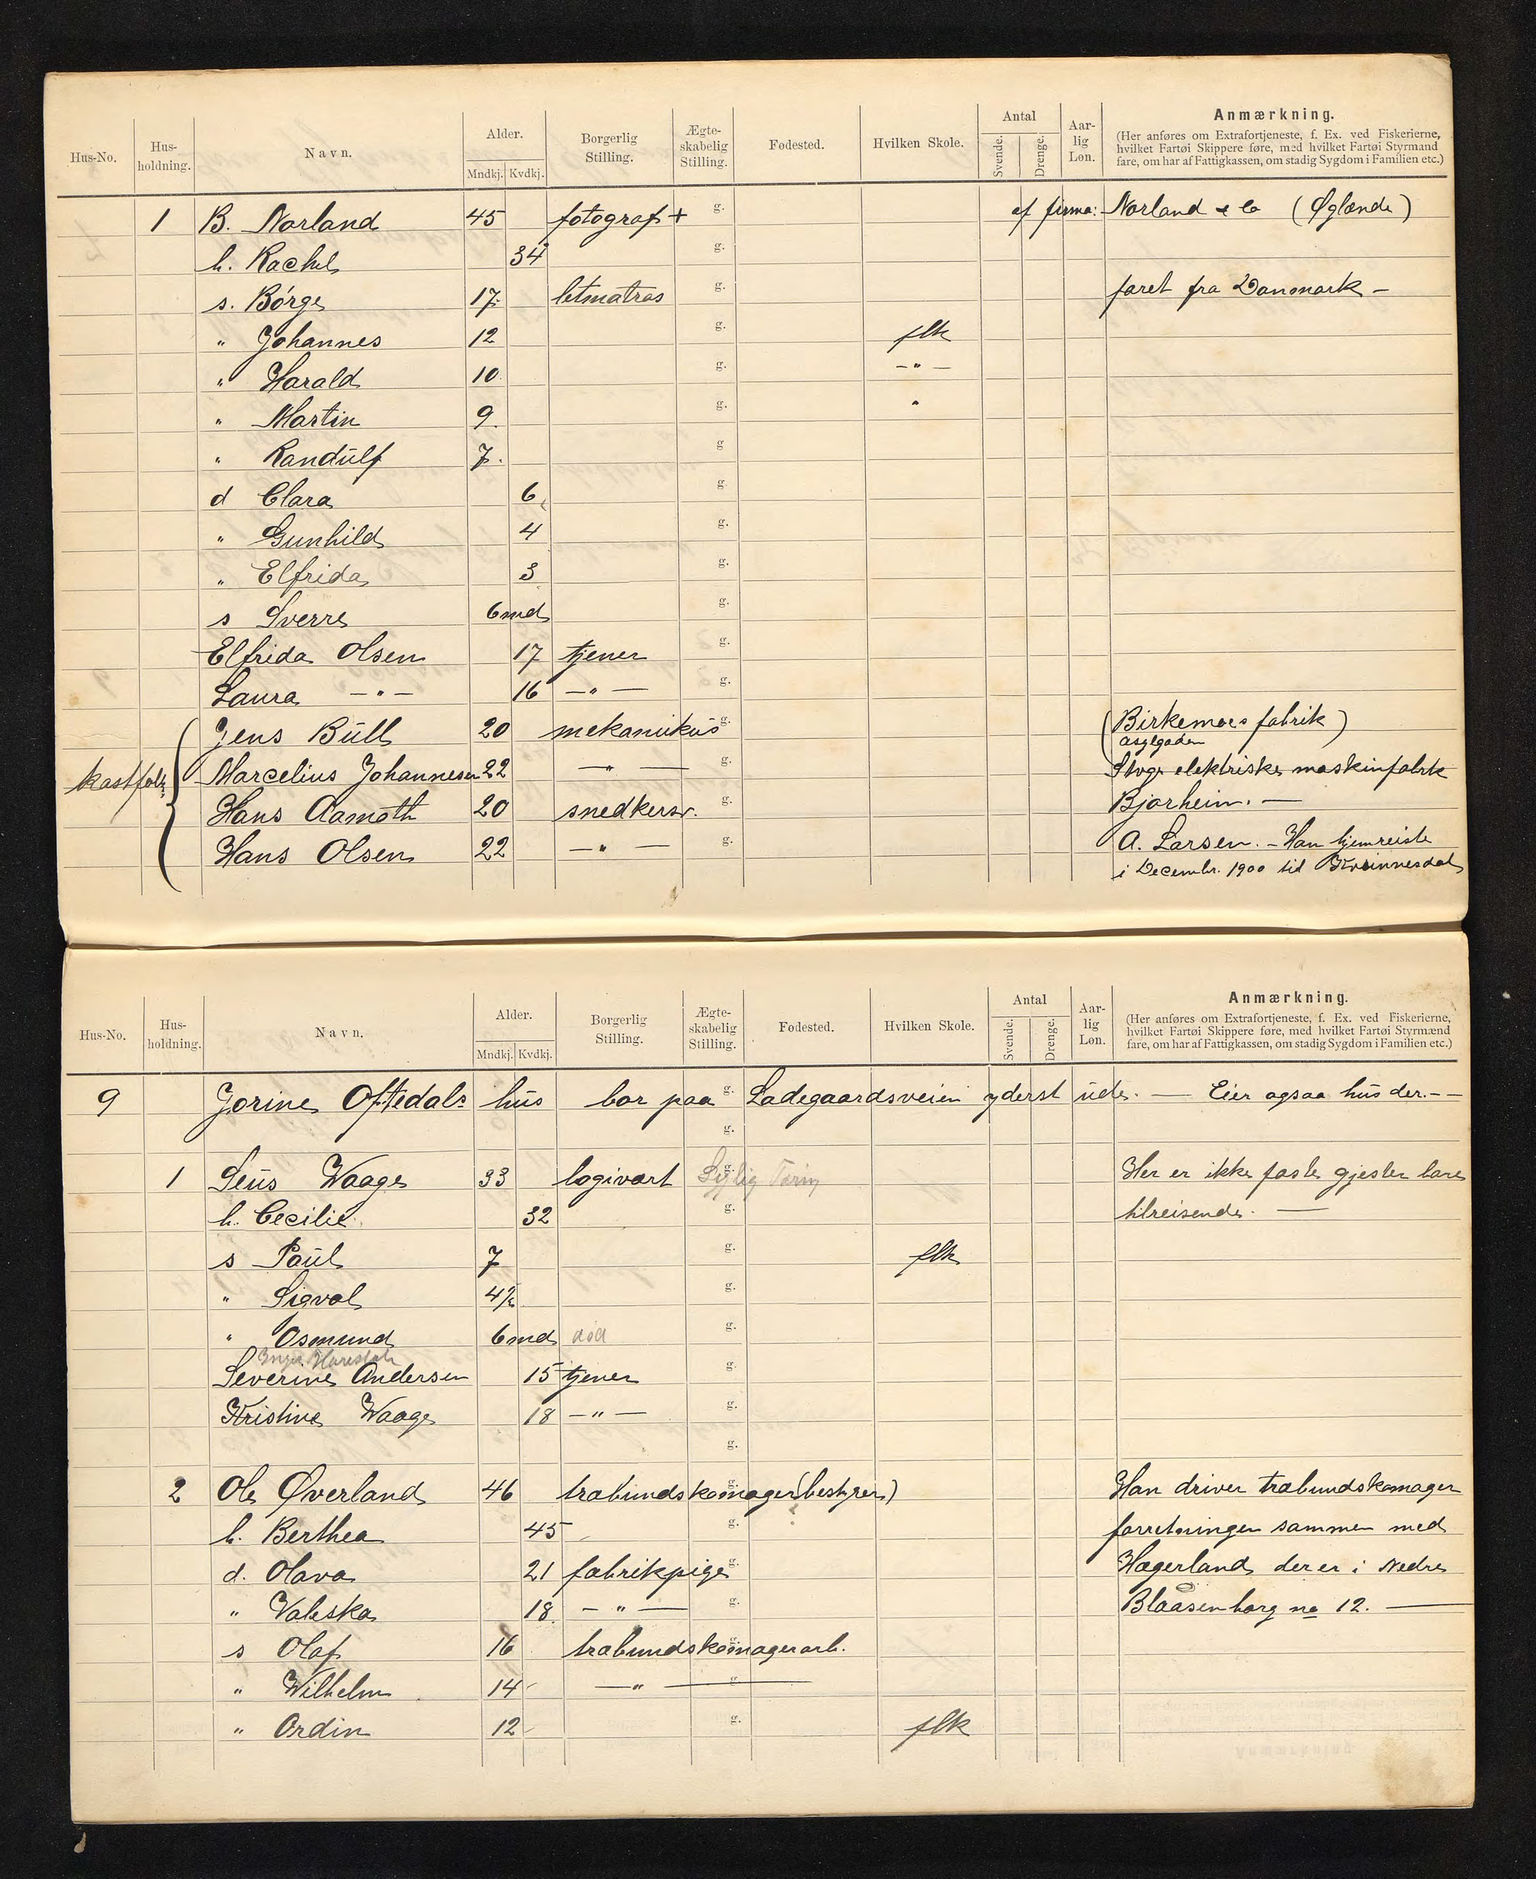 Hus-No. Hus-holdning. Navn. Alder. Mndkj. Kvdkj. Borgerlig Stilling. Ægte-skabelig Stilling. Fødested. Hvilken Skole. Antal Svende. Drenge. Aar-lig Løn. Anmærkning.
(Her anføres om Extrafortjeneste, f. Ex. ved Fiskerierne, hvilket Fartøi Skippere føre, med hvilket Fartøi Styrmænd fare, om har af Fattigkassen, om stadig Sygdom i Familien etc.)
1 B. Norland 45 fotograf + g. af firma: Norland & Co (Øglænde)
h. Rachel 34 g.
s. Børge 17 letmatros g. faret fra Danmark –
" Johannes 12 g. flk
" Harald 10 g. – " –
" Martin 9 g. "
" Randulf 7 g
d Clara 6 g.
" Gunhild 4 g.
" Elfrida 3 g.
s Sverre 6 md g.
Elfrida Olsen 17 tjener g.
Laura – " – 16 – " – g.
Jens Bull 20 mekanikus g. (Birkemoes fabrik)
asylgaden
kostfolk { Marcelius Johannesen 22 – " – g. elektriske maskinfabrik
Hans Aamoth 20 snedkersv. g. Bjorheim. –
Hans Olsen 22 – " – g. A. Larsen. – Han hjemreiste
i Decembr. 1900 til Kvinnesdal
Hus-No. Hus-holdning. Navn. Alder. Mndkj. Kvdkj. Borgerlig Stilling. Ægte-skabelig Stilling. Fødested. Hvilken Skole. Antal Svende. Drenge. Aar-lig Løn. Anmærkning.
(Her anføres om Extrafortjeneste, f. Ex. ved Fiskerierne, hvilket Fartøi Skippere føre, med hvilket Fartøi Styrmænd fare, om har af Fattigkassen, om stadig Sygdom i Familien etc.)
9 Jorine Oftedals hus bor paa g. Ladegaardsveien yderst ude. – Eier ogsaa hus der. – –
g.
1 Waage 33 logivært g. Her er ikke faste gjester bare
h. Cecilie 32 g. tilreisende. –
s Paul 7 g. flk
" Sigval 4½ g.
" Osmund 6 md død g.
Severine Andersen 15 tjener g.
Kristine Waage 18 – " – g.
g.
2 Ole Øverland 46 træbundskomager (bestyrer) g. Han driver træbundskomager
h. Berthea 45 g. forretningen sammen med
d. Olava 21 fabrikpige g. Hægerland der er i Nedre
" Valeska 18 – " – g. Blaasenborg no 12. –
s Olaf 16 træbundskomagerarb. g.
" Wilhelm 14 – " – g.
" Ordin 12 g. flk